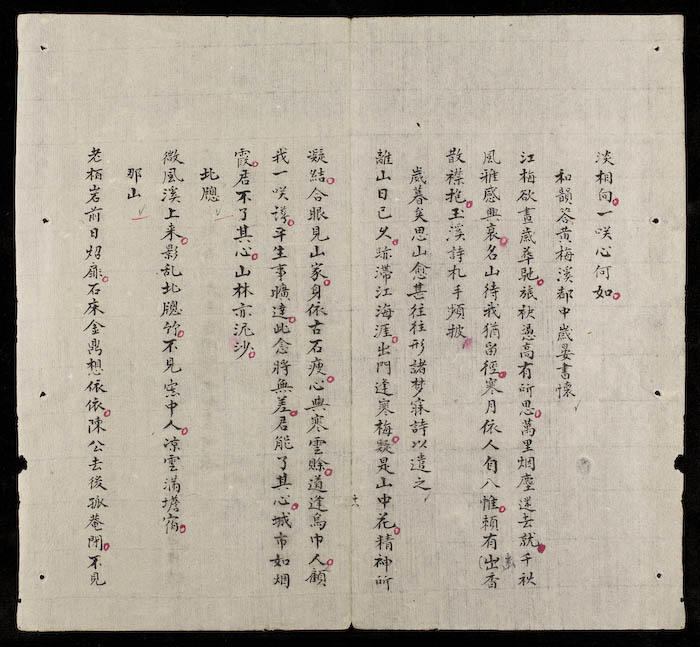 淡相向一咲心何如
和韻答黃梅溪都中歲晏書懷
江梅欲晝歲華馳旅袂憑高有所思萬里烟塵迷去就千秋
風雅感興衰名山待我猶留徑寒月依人自八惟頼有出香
幽
散襟抱玉溪詩札手頻披
歲暮矣思山愈甚往往形諸梦寐詩以遣之
離山日已久跡滯江海涯出門逢寒梅疑是山中花精神所
凝結合眼見山家身依古石瘦心與寒雲賒道逢烏巾人顧
我一咲譁平生事曠達此念將無差君能了其心城市如烟
霞君不了其心山林亦沅沙
北牕
微風溪上来影乱北牕竹不見窓中人凉雲滿墻宿
那山
老栢岩前日炤扉石床金鼎想依依陳公去後孤菴閉不見